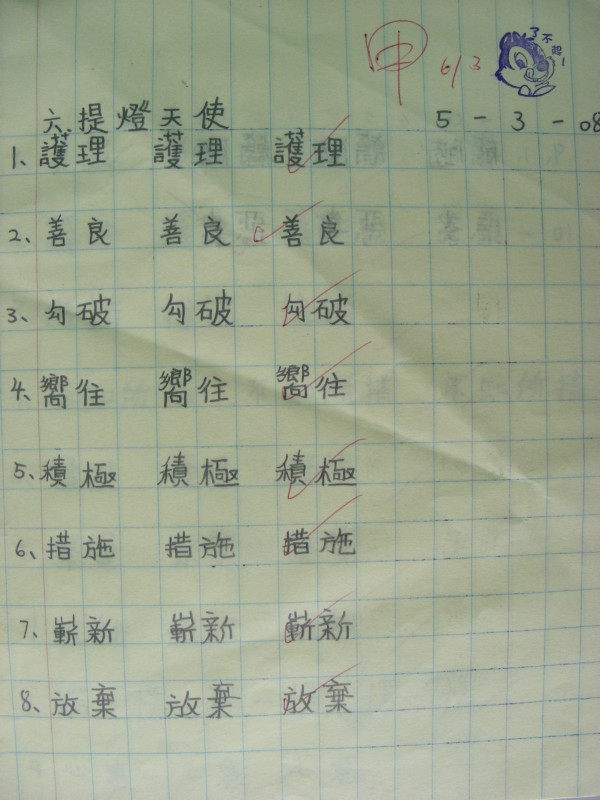 甲 6/3 3不怕!
5-3-08
六提燈天使
1、護理 護理 護理
2、善良 善良 善良
3、勾破 勾破 勾破
4、嚮往 嚮往 嚮往
5、積極 積極 積極
6、措施 措施 措施
7、嶄新 嶄新 嶄新
8、放棄 放棄 放棄